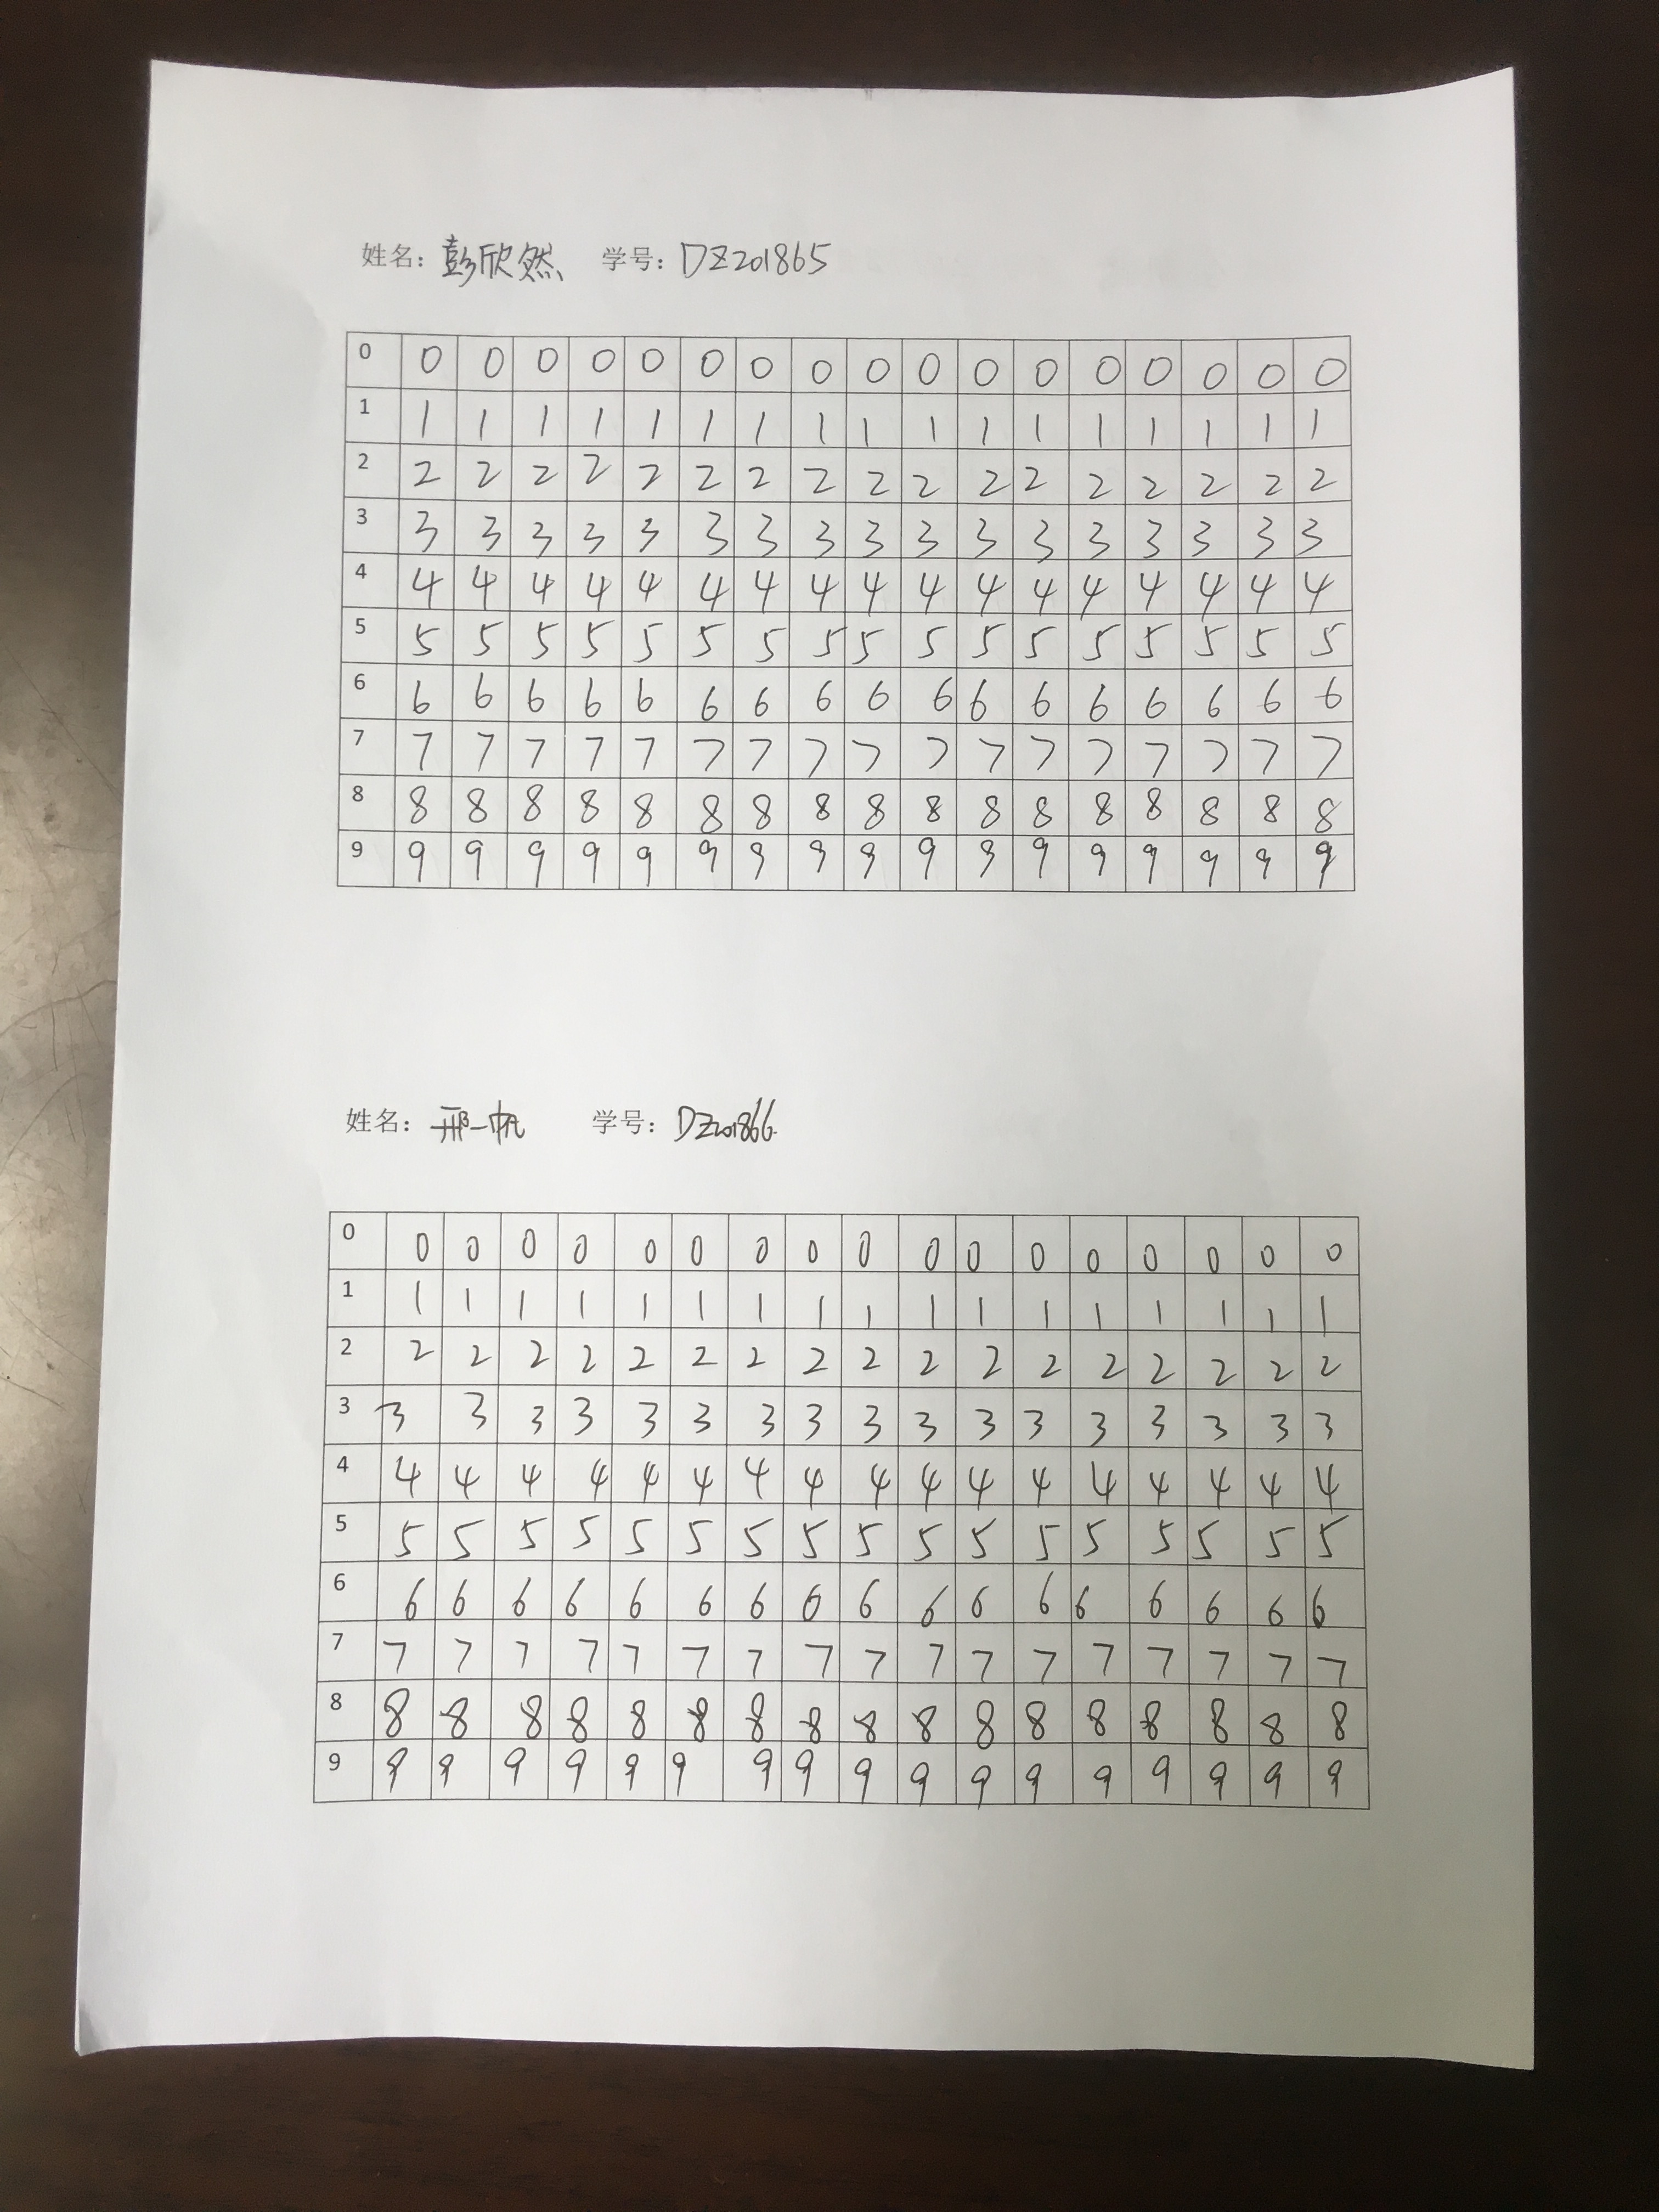 姓名：彭欣然 学号：DZ201865
0 0 0 0 0 0 0 0 0 0 0 0 0 0 0 0 0 0
1 1 1 1 1 1 1 1 1 1 1 1 1 1 1 1 1 1
2 2 2 2 2 2 2 2 2 2 2 2 2 2 2 2 2 2
3 3 3 3 3 3 3 3 3 3 3 3 3 3 3 3 3 3
4 4 4 4 4 4 4 4 4 4 4 4 4 4 4 4 4 4
5 5 5 5 5 5 5 5 5 5 5 5 5 5 5 5 5 5
6 6 6 6 6 6 6 6 6 6 6 6 6 6 6 6 6 6
7 7 7 7 7 7 7 7 7 7 7 7 7 7 7 7 7 7
8 8 8 8 8 8 8 8 8 8 8 8 8 8 8 8 8 8
9 9 9 9 9 9 9 9 9 9 9 9 9 9 9 9 9 9
姓名：邢一帆 学号：DZ201866
0 0 0 0 0 0 0 0 0 0 0 0 0 0 0 0 0 0
1 1 1 1 1 1 1 1 1 1 1 1 1 1 1 1 1 1
2 2 2 2 2 2 2 2 2 2 2 2 2 2 2 2 2 2
3 3 3 3 3 3 3 3 3 3 3 3 3 3 3 3 3 3
4 4 4 4 4 4 4 4 4 4 4 4 4 4 4 4 4 4
5 5 5 5 5 5 5 5 5 5 5 5 5 5 5 5 5 5
6 6 6 6 6 6 6 6 6 6 6 6 6 6 6 6 6 6
7 7 7 7 7 7 7 7 7 7 7 7 7 7 7 7 7 7
8 8 8 8 8 8 8 8 8 8 8 8 8 8 8 8 8 8
9 9 9 9 9 9 9 9 9 9 9 9 9 9 9 9 9 9